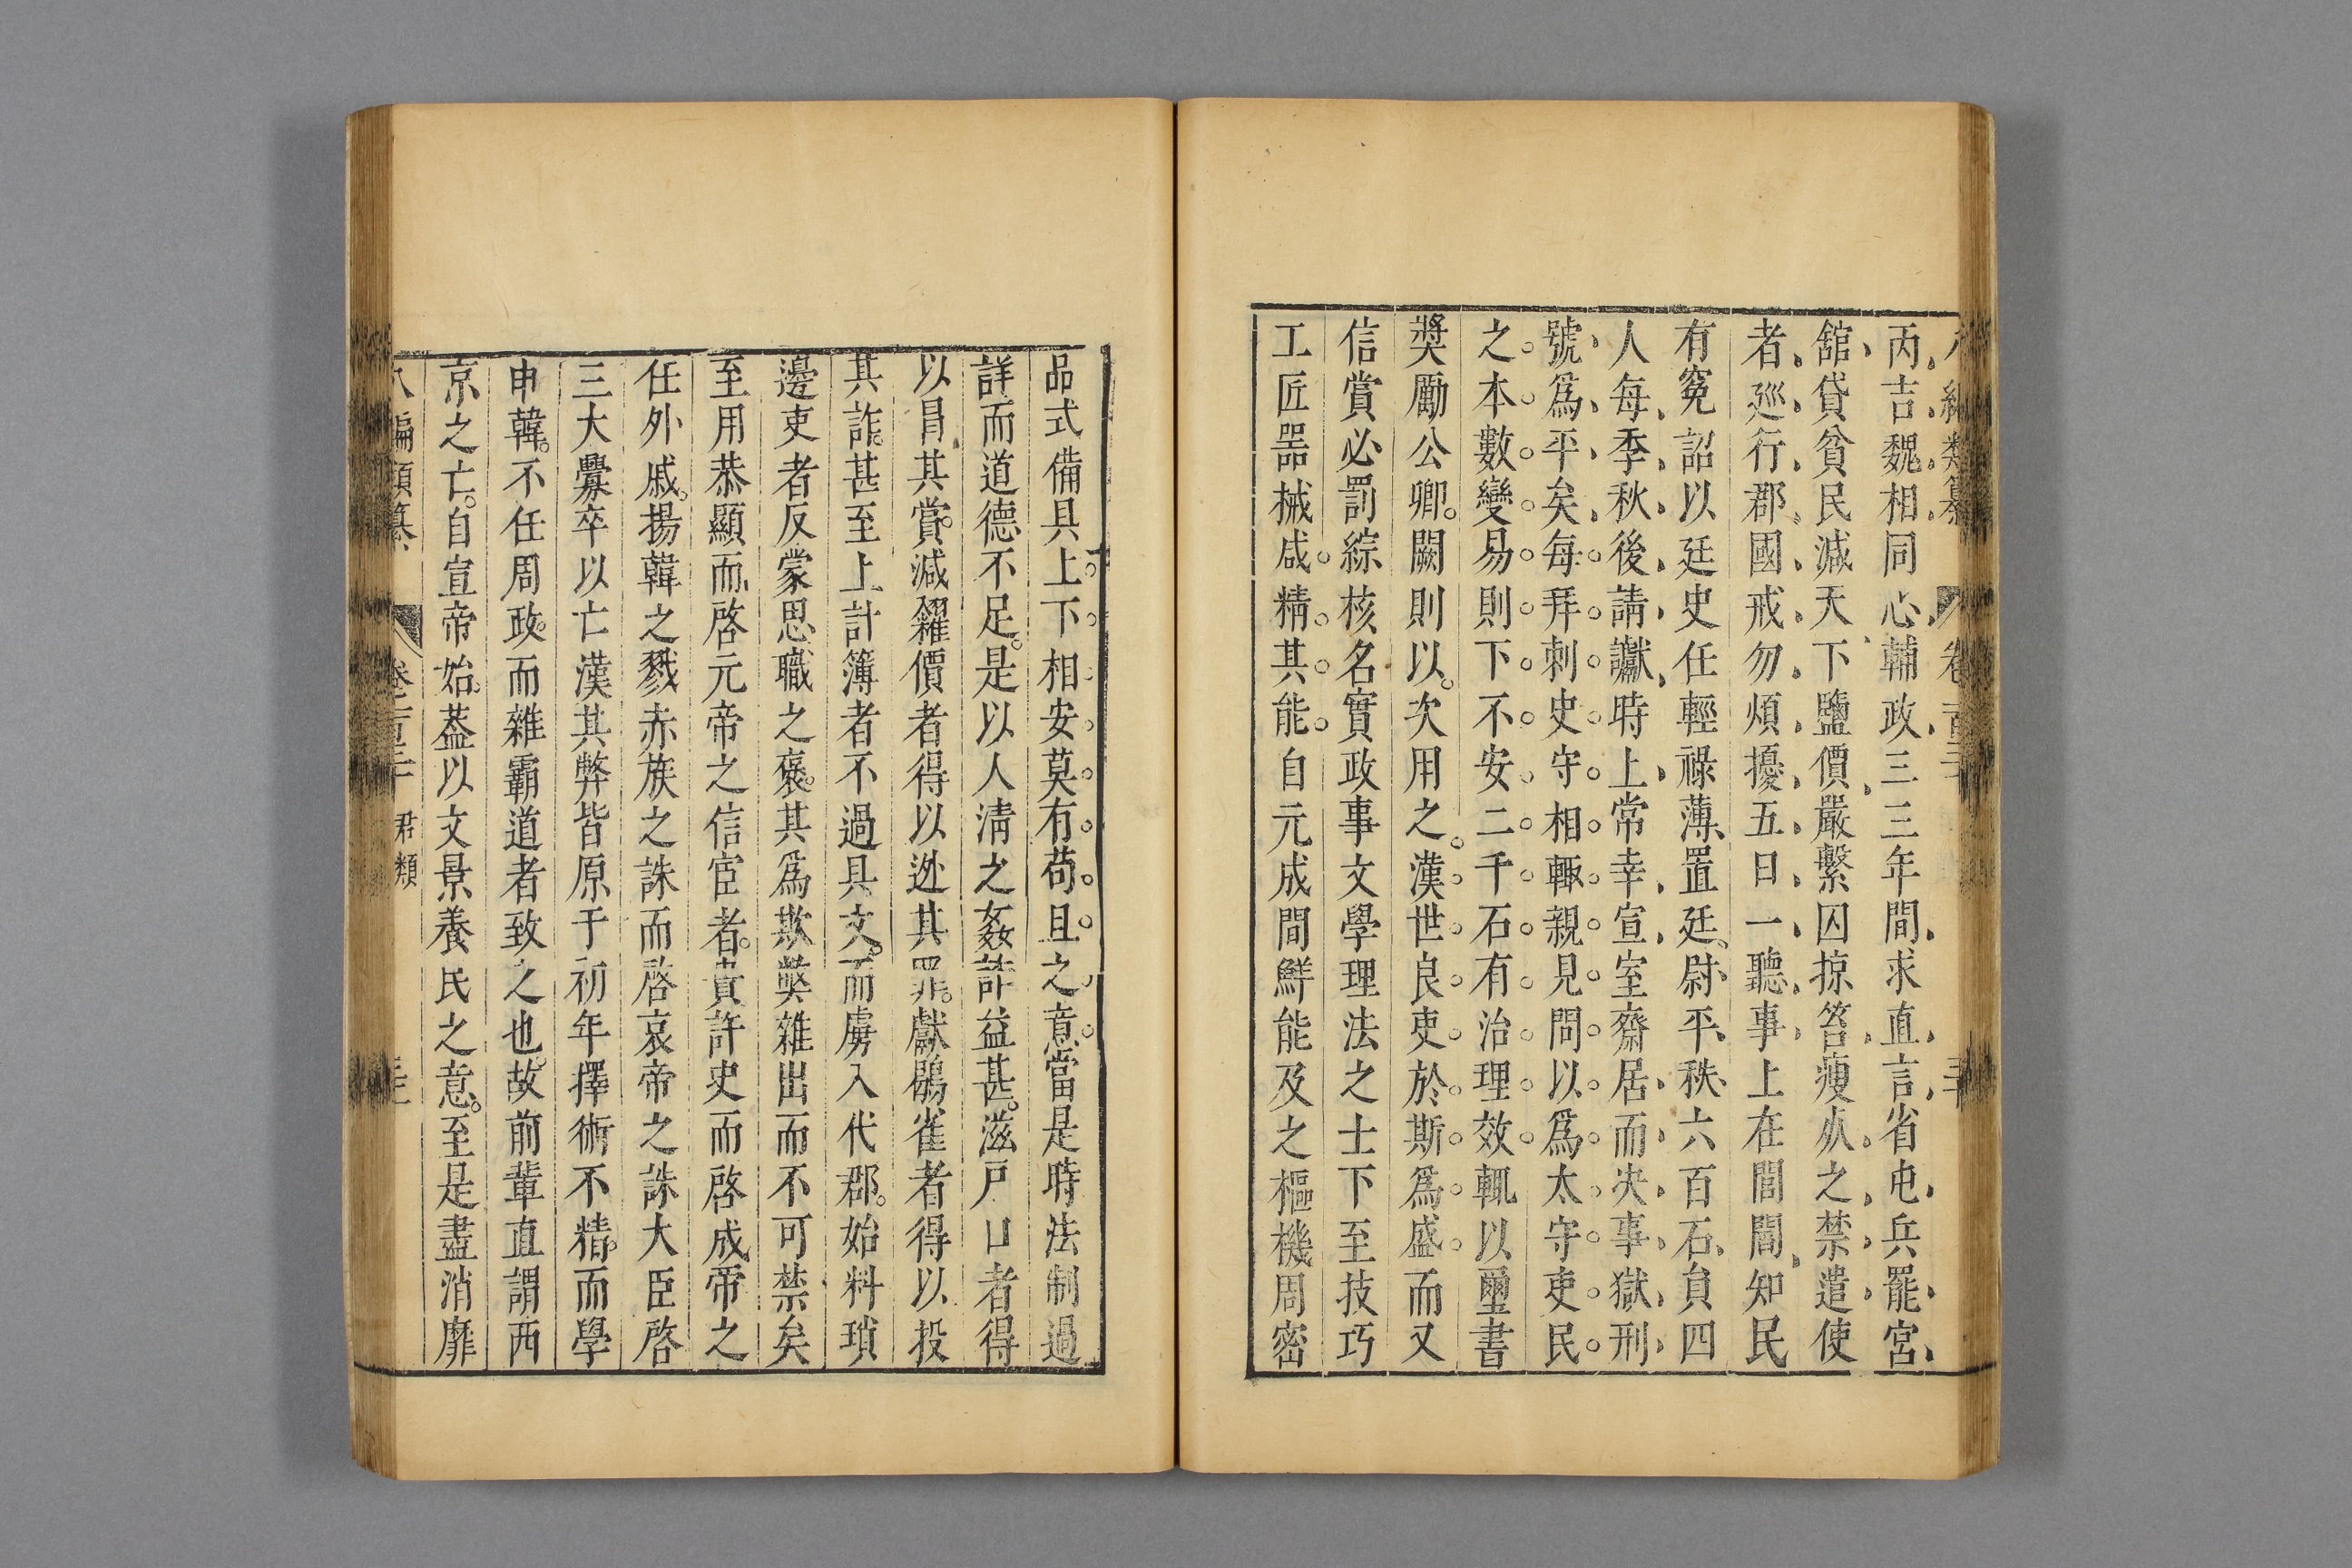 丙吉魏相同心輔政三三年間求直言省屯兵罷宮
舘貸貧民減天下鹽價嚴繫囚掠笞瘦㱥之禁遣使
者巡行郡國戒勿煩擾五日一聽事上在閭閻知民
有寃詔以廷史任輕祿薄置廷尉平秩六百石負四
人每季秋後請讞時上常幸宣室齋居而决事獄刑
號爲平矣每拜刺史守相輙親見問以爲太守吏民
之本數變易則下不安二千石有治理效輒以璽書
奬勵公卿闕則以次用之漢世良吏於斯爲盛而又
信賞必罰綜核名實政事文學理法之士下至技巧
工匠器械咸精其能自元成間鮮能及之樞機周密
品式備具上下相安莫有苟且之意當是時法制過
詳而道德不足是以人淸之姦詐益甚滋戶口者得
以冒其賞減糴價者得以迯其罪獻鶡雀者得以投
其詐甚至上計簿者不過具文而虜入代郡始料瑣
邊吏者反蒙思職之褒其爲欺獘雜出而不可禁矣
至用恭顯而啓元帝之信宦者貴許史而啓成帝之
任外戚揚韓之戮赤族之誅而啓哀帝之誅大臣啓
三大釁卒以亡漢其弊皆原于初年擇術不精而學
申韓不任周政而雜霸道者致之也故前輩直謂西
京之亡自宣帝始葢以文景養民之意至是盡消靡
八編類纂 卷一百三十 君類